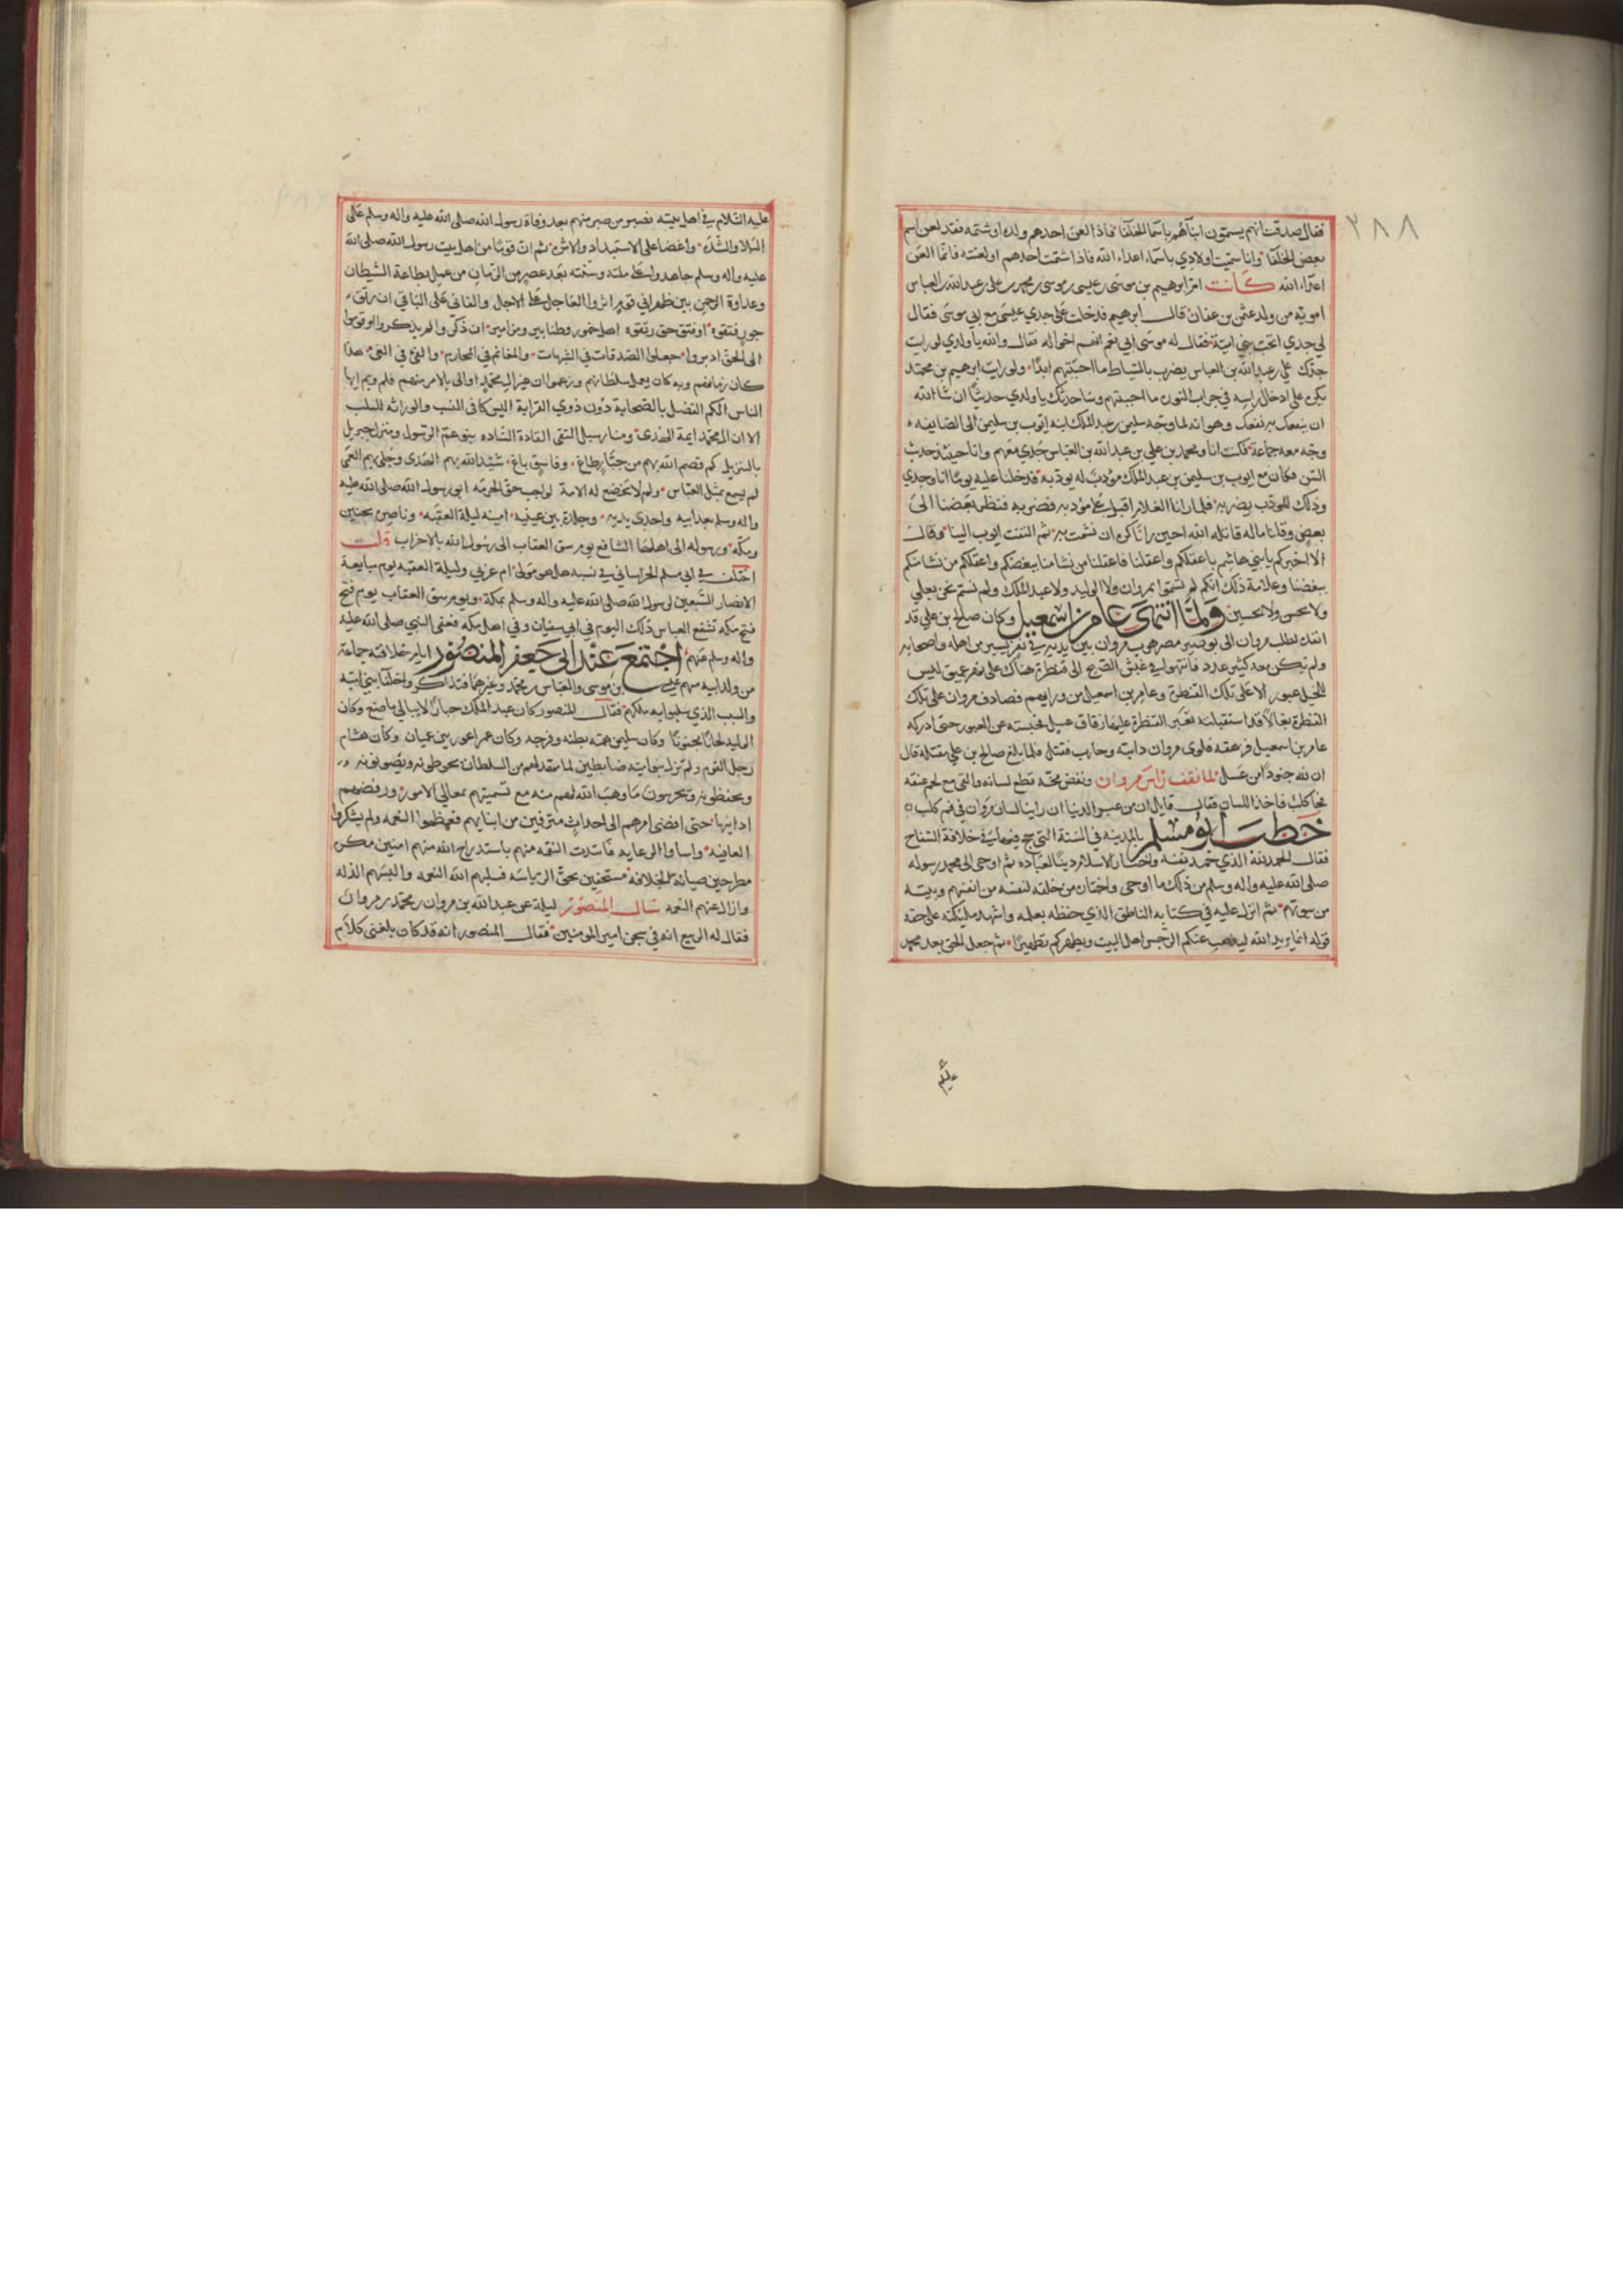 ٢٨٨
فقال صدقت انهم يسمون ابناءهم باسما الخلفا فاذا لعن احدهم ولده او شتمه فقد لعن اسم
بعض الخلفا وانا سميت اولادي باسماء اعداء الله فاذا شتمت احدهم او لعنته فانما العن
اعداء الله كانت ام ابرهيم بن موسى بن عيسى بن موسى بن محمد بن علي بن عبد الله بن العباس
امويه من ولد عثمن بن عفان قال ابرهيم فدخلت على جدي عيسى مع ابي موسى فقال
لي جدي اتحب بني امية فقال له موسى ابي نعم انهم اخواله فقال والله يا ولدي لو رايت
جدك علي بن عبد الله بن العباس يضرب بالسياط ما احببتهم ابدا ولو رايت ابرهيم بن محمد
يكره على ادخال راسه في جراب النوره ما احببتهم وساحدثك يا ولدي حديثا ان شا الله
ان ينفعك به نفعك وهو انه لما وجه سليمن بن عبد الملك ابنه ايوب بن سليمن الى الصايفه
وجه معه جماعة فكنت انا ومحمد بن علي بن عبد الله بن العباس جدي معهم وانا حينئذ حدث
السن وكان مع ايوب بن سليمن بن عبد الملك مؤدب له يؤدبه فدخلنا عليه يوما انا وجدي
وذلك المودب يضربه فلما رانا الغلام اقبل على مؤدبه فضربه فنظر بعضنا الى
بعض وقلنا ماله قاتله الله احين رانا كره ان نشمت به ثم التفت ايوب الينا وقال
الا اخبركم يا بني هاشم باعقلكم واعقلنا فاعقلنا من نشا منا يبغضكم واعقلكم من نشا منكم
ببغضنا وعلامة ذلك انكم لم تسموا بمروان ولا الوليد ولا عبد الملك ولم نسم نحن بعلي
ولا بحسن ولا بحسين ولما انتهى عامر بن اسمعيل وكان صالح بن علي قد
انفذه لطلب مروان الى بوصير مصر هرب مروان بين يديه في نفر يسير من اهله واصحابه
ولم يكن معه كثير عدد فانتهوا في غبش الصبح الى قنطرة هناك على نهر عميق ليس
للخيل عبور الا على تلك القنطرة وعامر بن اسمعيل من ورايهم فصادف مروان على تلك
القنطرة بغالا قد استقبلته تعبر القنطرة عليها زقاق عسل فحبسته عن العبور حتى ادركه
عامر بن اسمعيل فرهقه فلوى مروان دابته وحارب فقتل فلما بلغ صالح بن علي مقتله قال
ان لله جنودا من عسل لما نقف راس مروان ونفض مخه قطع لسانه والقي مع لحم عنقه
فجا كلب فاخذ اللسان فقال قايل ان من عبر الدنيا ان راينا لسان مروان في فم كلب
خطب ابو مسلم بالمدينه في السنة التي حج فيها في خلافة السفاح
فقال الحمد لله الذي حمد نفسه واختار الاسلام دينا لعباده ثم اوحى الى محمد رسوله
صلى الله عليه واله وسلم من ذلك ما اوحى واختاره من خلقه لنفسه من انفسهم وبيته
من بيوتهم ثم انزل عليه في كتابه الناطق الذي حفظه بعلمه واشهد ملئكته على حقه
قوله انما يريد الله ليذهب عنكم الرجس اهل البيت ويطهركم تطهيرا ثم جعل الحق بعد محمد
عليه السلام في اهل بيته فصبر من صبر منهم بعد وفاة رسول الله صلى الله عليه واله وسلم على
البلاء والشدة واغضا على الاستبداد والاثره ثم ان قوما من اهل بيت رسول الله صلى الله
عليه واله وسلم جاهدوا على ملته وسنته بعد عصر من الزمان من عمل بطاعة الشيطان
وعداوة الرحمن بين ظهراني قوم اثروا العاجل على الاجل والفاني على الباقي ان رتق
جور فتقوه او فتق حق رتقوه اهل خمور وطنابير ومزامير ان ذكروا لم يذكروا او قوموا
الى الحق ادبروا جعلوا الصدقات في الشبهات والمغانم في المحارم والفي في الغي هذا
كان زمانهم وبه كان يعمل سلطانهم وزعموا ان غير ال محمد اولى بالامر منهم فلم وبم ايها
الناس الكم الفضل بالصحابة دون ذوي القرابة الشركا في النسب والورثه للسلب
الا ان ال محمد ايمة الهدى ومنار سبل التقى القادة الذاده بنو عم الرسول ومنزل جبريل
بالتنزيل كم قصم الله بهم من جبار طاغ وفاسق باغ شيد الله بهم الهدى وجلى بهم العمى
لم يسمع بمثل العباس ولم لا تخضع له الامة لواجب حق الحرمه ابو رسول الله صلى الله عليه
واله وسلم بعد ابيه واحدى يديه وجلدة بين عينيه امينه ليلة العقبه وناصره بحنين
ومكه ورسوله الى اهلها الشافع يوم العقاب الى رسول الله بالاحزاب قلت
اختلف في ابي مسلم الخراساني في نسبه هل هو مولى ام عربي وليلة العقبه يوم مبايعة
الانصار السبعين لرسول الله صلى الله عليه واله وسلم بمكة ويوم العقاب يوم فتح
فتح مكه تشفع العباس ذلك اليوم في ابي سفيان وفي اهل مكه فعفى النبي صلى الله عليه
واله وسلم عنهم اجتمع عند ابي جعفر المنصور ايام خلافته جماعة
من ولد ابيه منهم عيسى بن موسى والعباس بن محمد وغيرهما فتذاكروا خلفا بني اميه
والسبب الذي سلبوا به ملكهم فقال المنصور كان عبد الملك جبارا لا يبالي ما صنع وكان
الوليد لحانا مجنونا وكان سليمن همته بطنه وفرجه وكان عمر اعور بين عميان وكان هشام
رجل القوم ولم تزل بنو اميه ضابطين لما مهد لهم من السلطان يحوطونه ويصونونه
ويحفظونه ويحرسون ما وهب الله لهم منه مع تسنمهم معالي الامور ورفضهم
ادانيها حتى افضى امرهم الى احداث مترفين من ابنايهم فغمطوا النعمه ولم يشكروا
العافيه واساوا الرعايه فابتدت النقمه منهم باستدراج الله منهم امنين مكره
مطرحين صيانة الخلافة مستخفين بحق الرياسه فسلبهم الله النعمه والبسهم الذله
وازال عنهم النعمه سال المنصور ليلة عن عبد الله بن مروان بن محمد بن مروان
فقال له الربيع انه في سجن امير المومنين فقال المنصور انه قد كان بلغني كلام
عليم